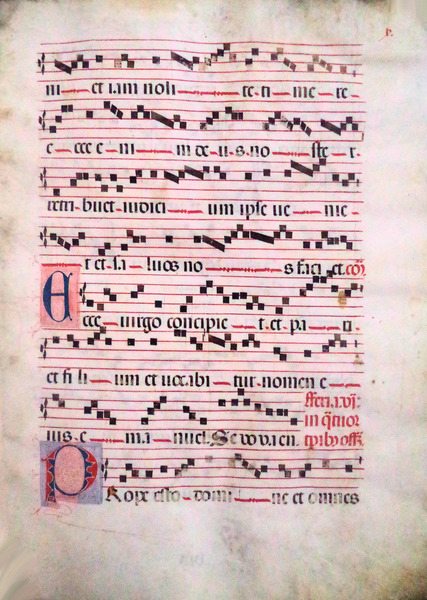 ni et iam noli te ti me re
e cce e ni m de u s no ste r
retri buet iudici um ipse ve ni e
t et sa luos no s faci et. cōī
Ecce virgo concipie t. et pa ri
et fi li um et vocabi tur nomen e
ius. e ma nuel. Seuovaen
in q̄tuor
Prope esto domi ne et omnes